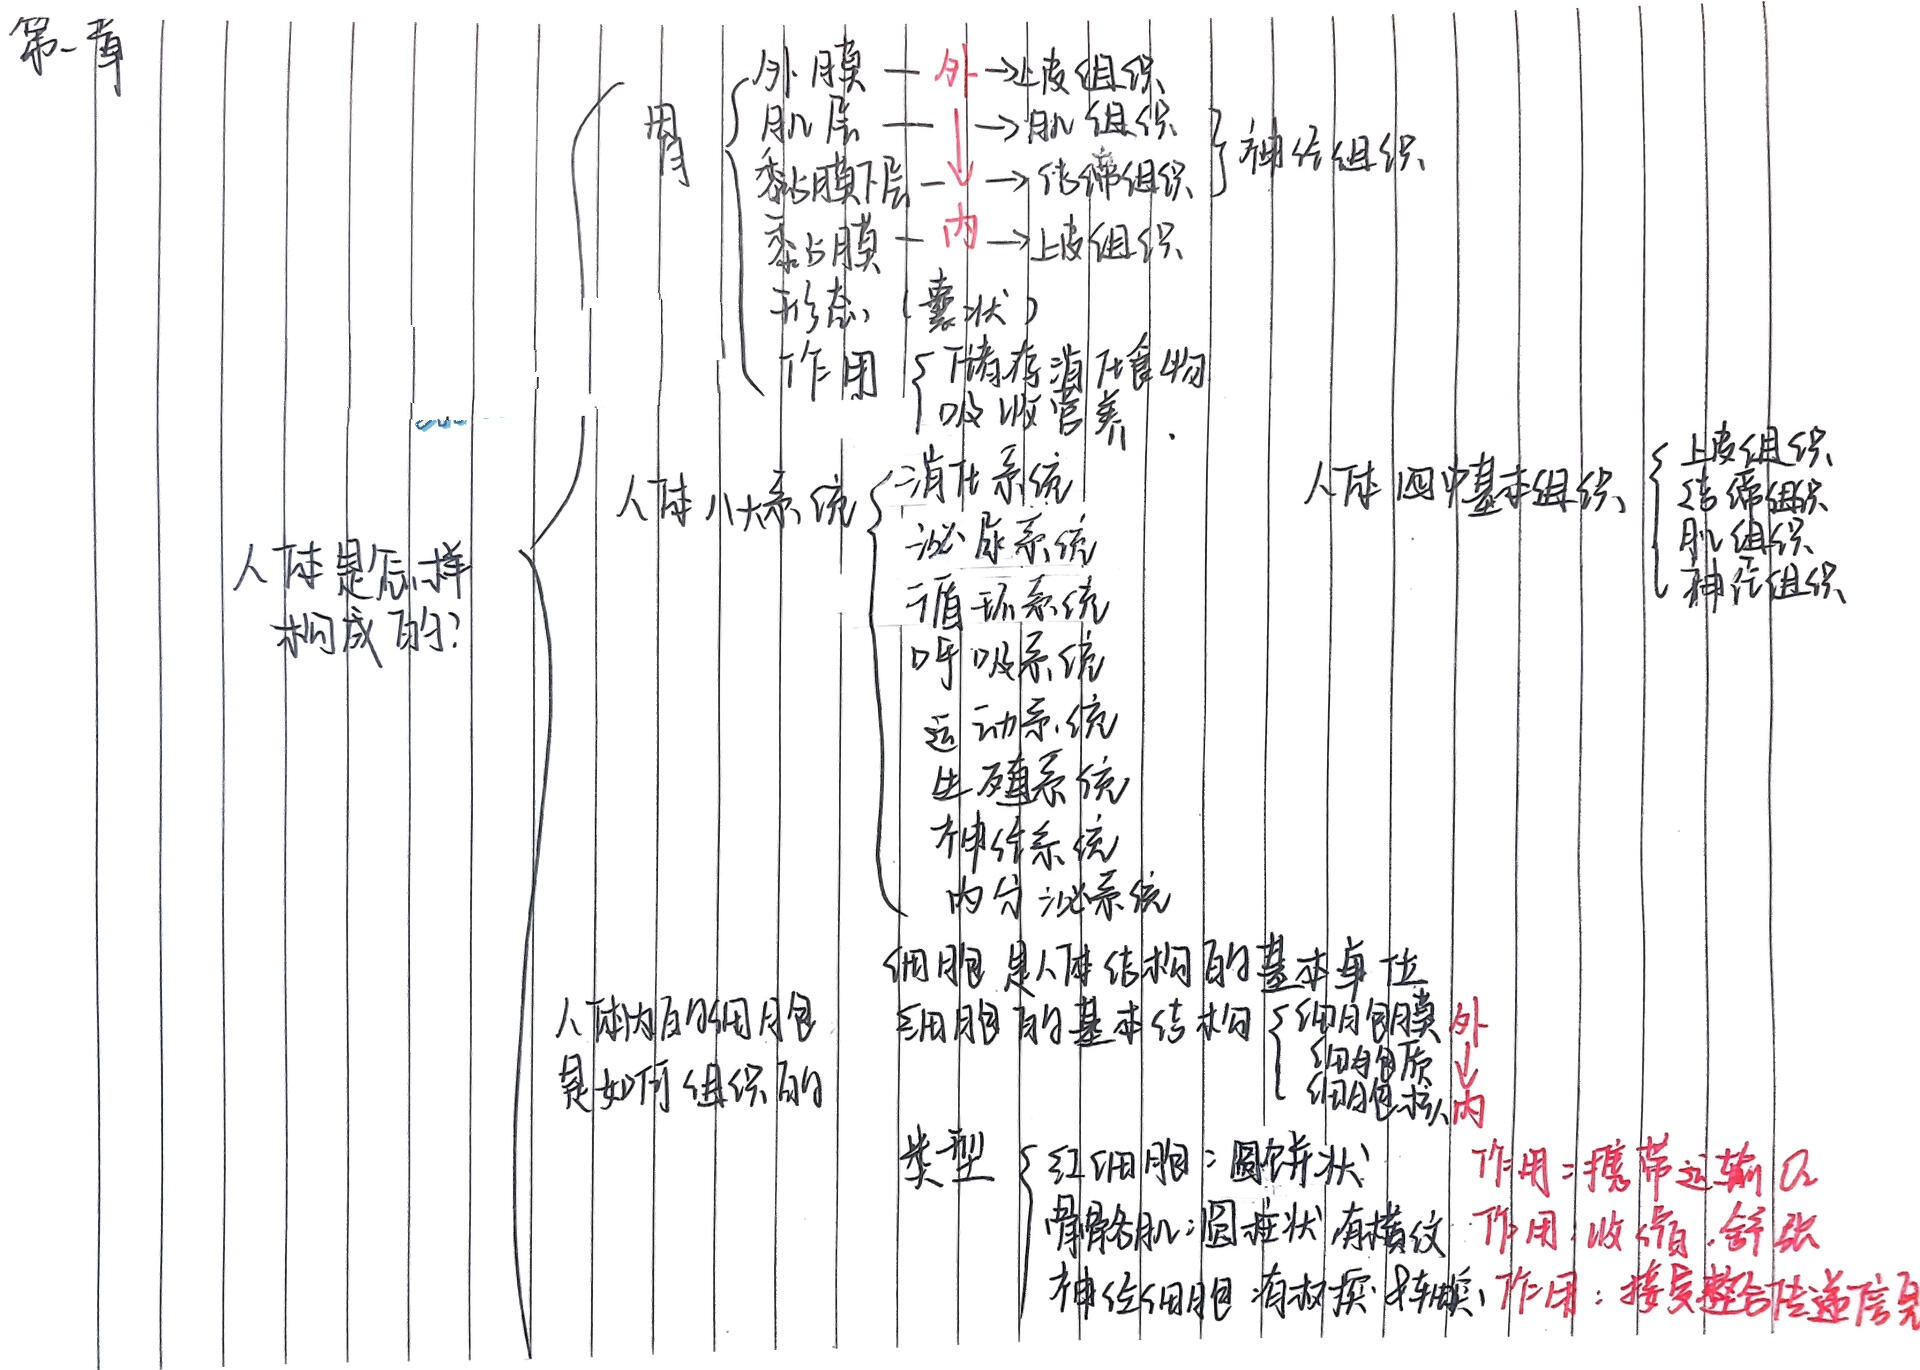 第一章
胃
外膜 — 外 → 上皮组织
肌层 — → 肌组织
黏膜下层 — → 结缔组织
神经组织
黏膜 — 内 → 上皮组织
形态 (囊状)
作用
储存消化食物
吸收营养.
人体八大系统
消化系统
泌尿系统
循环系统
呼吸系统
运动系统
生殖系统
神经系统
内分泌系统
人体四中基本组织
上皮组织
结缔组织
肌组织
神经组织
人体是怎样
构成的?
人体内的细胞
是如何组织的
细胞是人体结构的基本单位
细胞的基本结构
细胞膜 外
细胞质 ↓
细胞核 内
类型
红细胞:圆饼状 作用:携带运输O2
骨骼肌:圆柱状 有横纹 作用:收缩.舒张
神经细胞:有树突.长轴突. 作用:接受整合传递信息